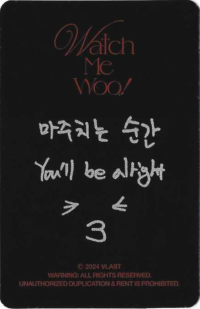 Watch
Me
Woo!
마주치는 순간
You'll be alright
> <
3
© 2024 VLAST
WARNING: ALL RIGHTS RESERVED.
UNAUTHORIZED DUPLICATION & RENT IS PROHIBITED.